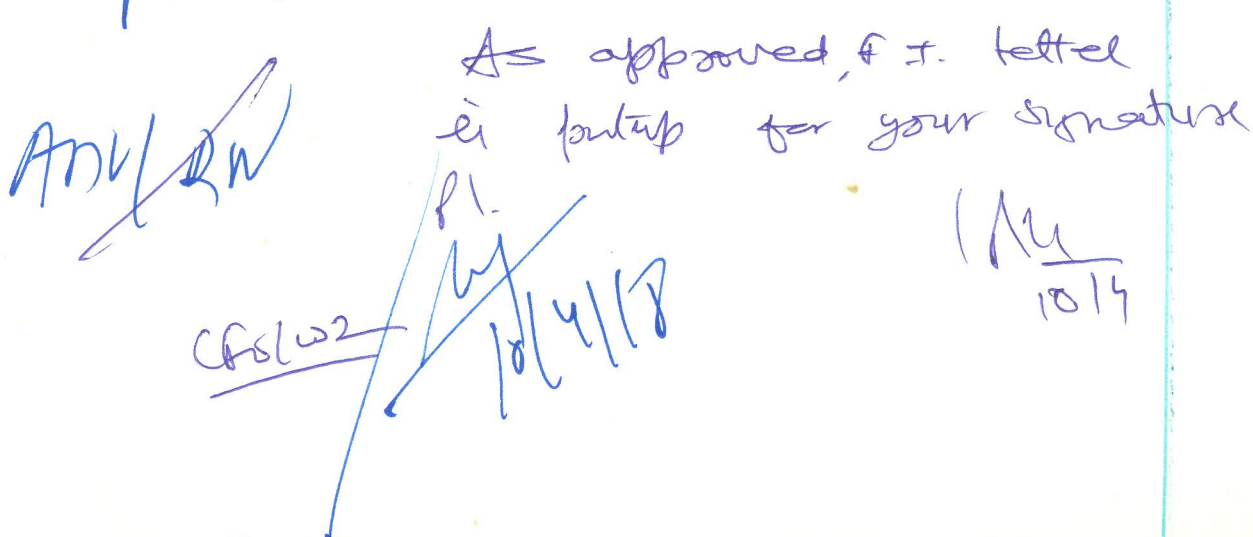 As approved, F. I. letter
is putup for your signature
pl.
ADV/RW
10/4
CFO/W2
10/4/18